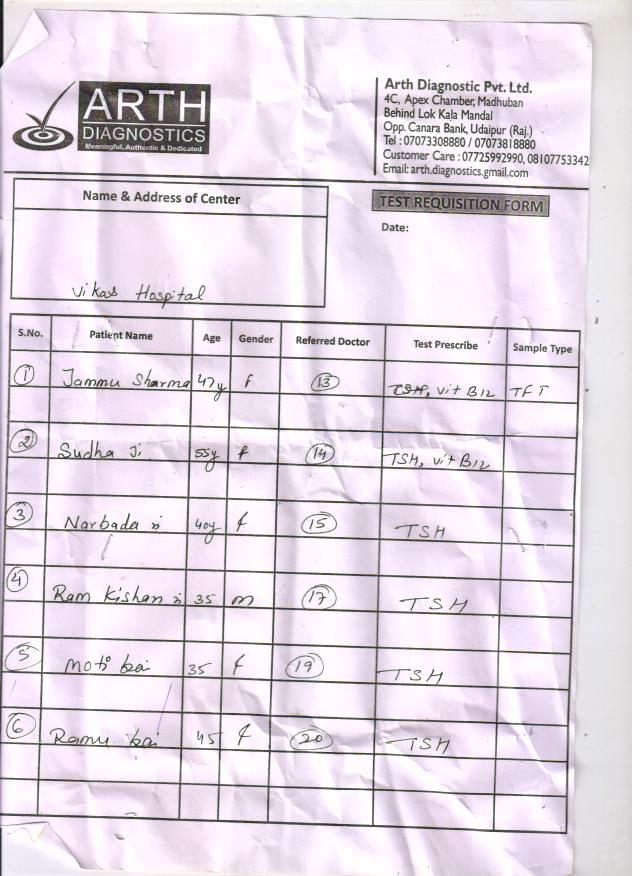 ARTH
DIAGNOSTICS
Meaningful, Authentic & Dedicated
Arth Diagnostic Pvt. Ltd.
4C, Apex Chamber, Madhuban
Behind Lok Kala Mandal
Opp. Canara Bank, Udaipur (Raj.)
Tel : 07073308880 / 07073818880
Customer Care : 07725992990, 08107753342
Email: arth.diagnostics.gmail.com
Name & Address of Center
TEST REQUISITION FORM
Date:
Vikas Hospital
S.No. Patient Name Age Gender Referred Doctor Test Prescribe Sample Type
1 Jammu Sharma 47y f 13 TSH, vit B12 TFT
2 Sudha Ji 55y f 14 TSH, vit B12
3 Narbada 40y f 15 TSH
4 Ram Kishan 35 m 17 TSH
5 Moti bai 35 f 19 TSH
6 Ramu bai 45 f 20 TSH